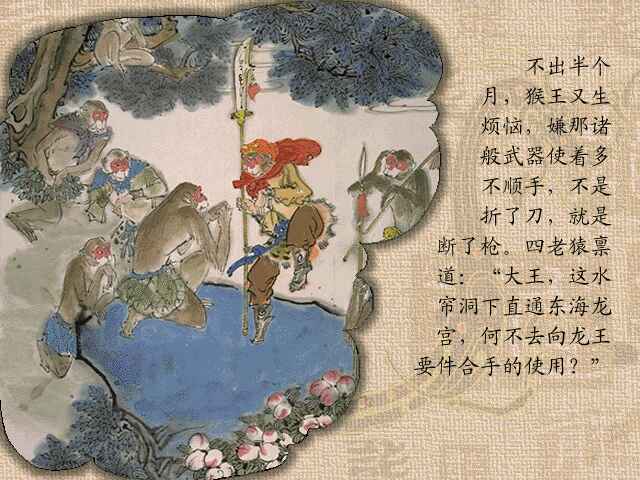 不出半个
月，猴王又生
烦恼，嫌那诸
般武器使着多
不顺手，不是
折了刀，就是
断了枪。四老猿禀
道：“大王，这水
帘洞下直通东海龙
宫，何不去向龙王
要件合手的使用？”